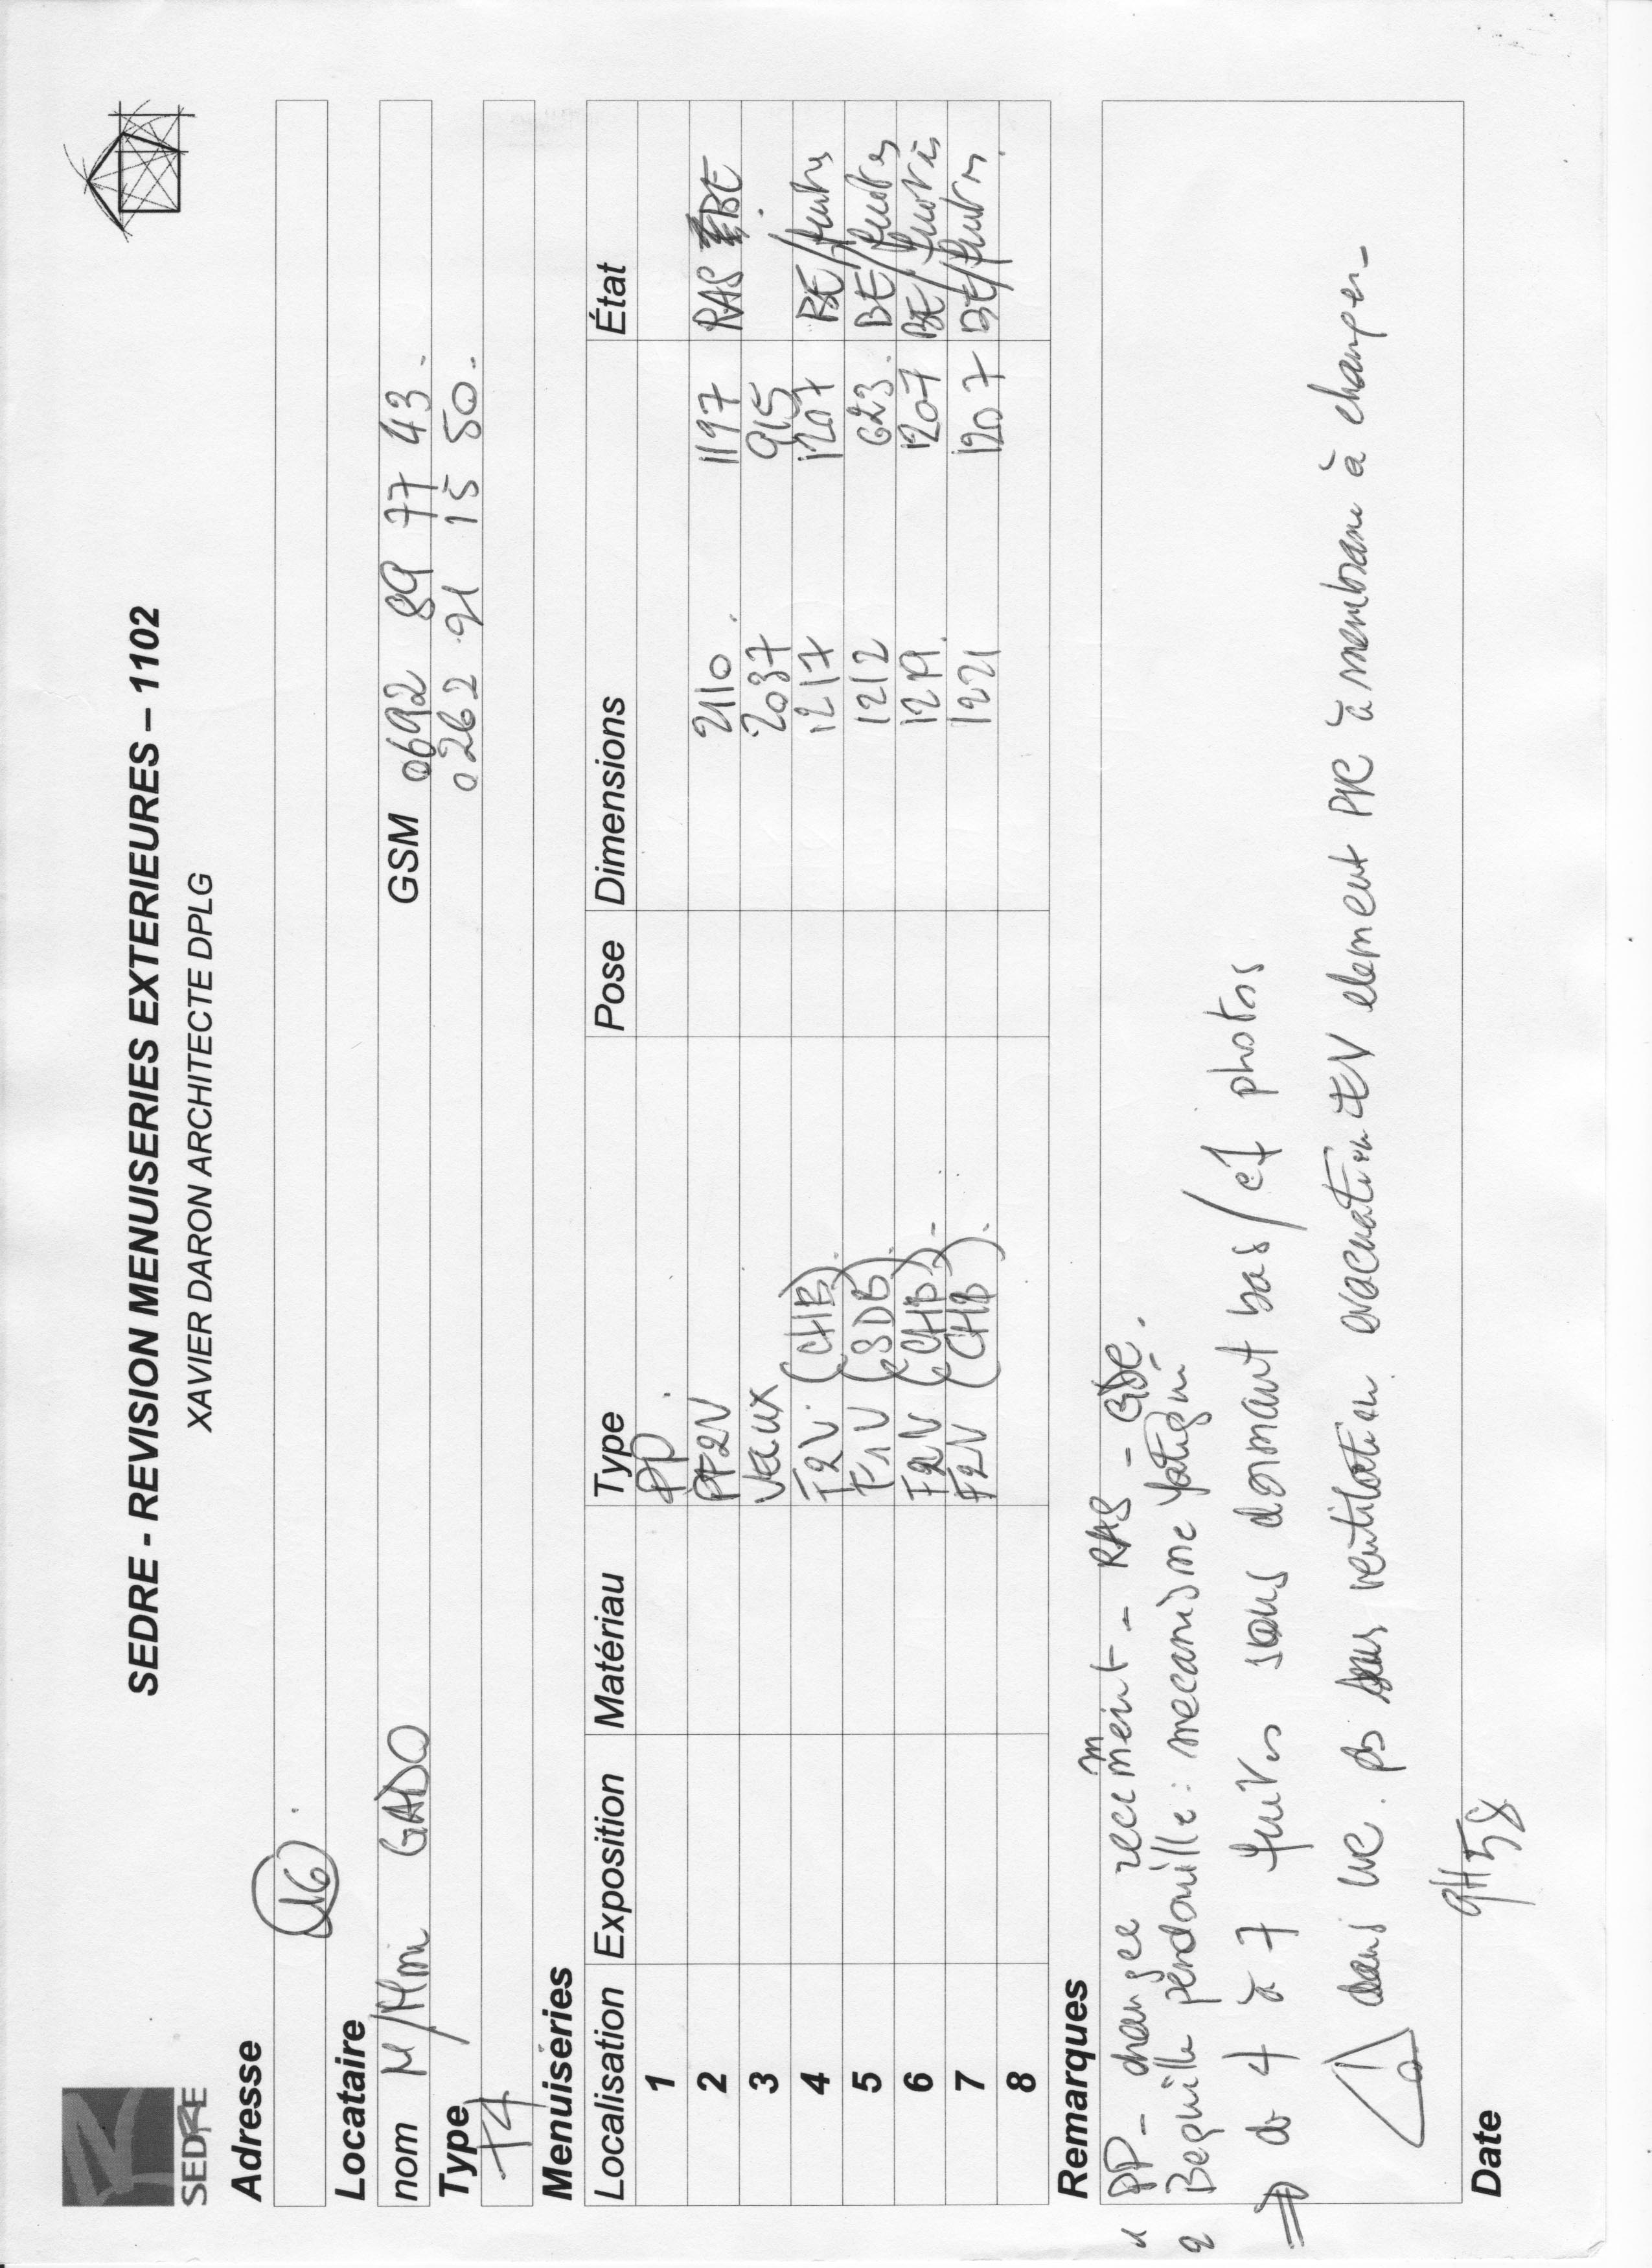 SEDRE
SEDRE - REVISION MENUISERIES EXTERIEURES – 1102
XAVIER DARON ARCHITECTE DPLG
Adresse
16
Locataire
nom M/Mme GADO GSM 0692 89 77 43
0262 91 15 50
Type
T4
Menuiséries
Localisation Exposition Matériau Type Pose Dimensions État
1 PP
2 PF2V 2110 1197 RAS BE
3 Velux 2037 915
4 F2V (CHB) 1217 1207 BE/fuites
5 F1V (SDB) 1212 623 BE/fuites
6 F2V (CHB) 1219 1207 BE/fuites
7 F2V (CHB) 1221 1207 BE/fuites
8
Remarques
1 PP - changee recemment - RAS -
2 Bequille pendouille : mecanisme fatigué
⇒ de 4 à 7 fuites sous dormant bas / cf photos
dans wc. pb ventilation evacuation element PVC à membrane à changer -
Date
9H58